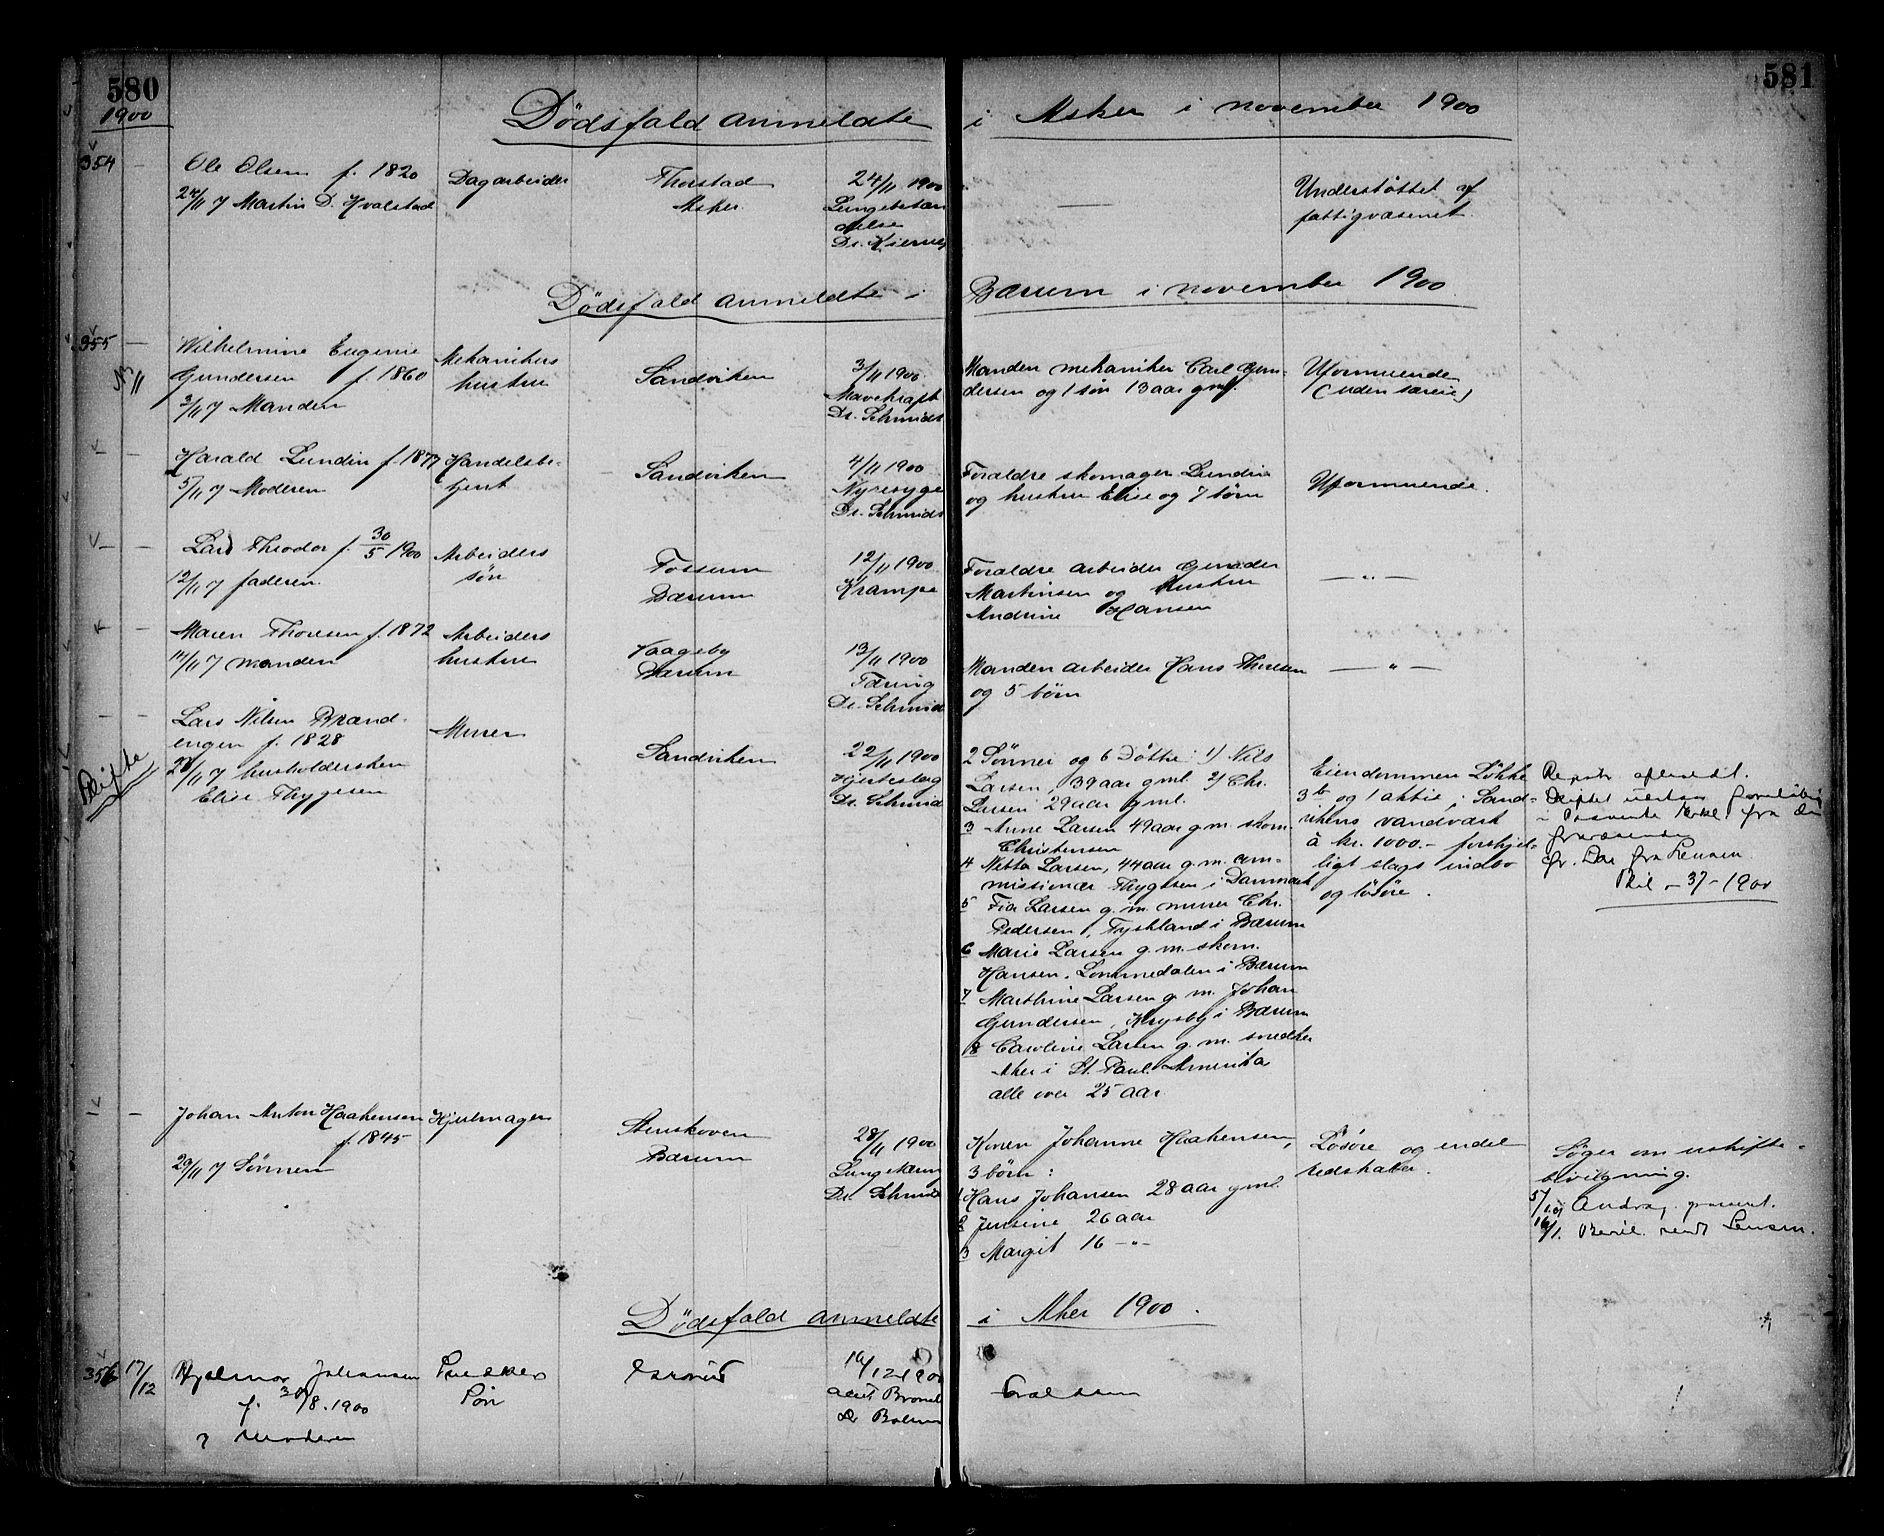 580
581
1900
Dødsfald anmeldte i Asker i november 1900
354
Ole Olsen f. 1820
24/11 Martin D. Hvalstad
Dagarbeider
Thorstad
Asker.
24/11 1900
Lungebetæn
delse
Dr.
Understøttet af
fattigvæsenet.
Dødsfald anmeldte i Bærum i november 1900
355
Wilhelmine Eugenie
Gundersen f. 1860
3/11 Manden
Mekanikers
hustru
Sandviken
3/11 1900.
Mavekræft
Dr. Schmidt
Manden mekaniker Carl Gun-
dersen og 1 søn 13 aar gml.
Uformuende
(uden særeie)
Harald Lundin f. 1877
5/11 Moderen
Handelsbe-
tjent
Sandviken
4/11 1900
Nyresyge
Dr. Schmidt
Forældre skomager Lundin
og hustru Elise og 7 børn
Uformuende.
Lars Theodor f. 30/5 1900
12/11 faderen.
Arbeiders
søn
Fossum
Bærum
12/11 1900
Krampe
Forældre arbeider
Martinsen og hustru
Andrine Hansen
— „ —
Maren Thoresen f. 1872
14/11 manden
Arbeiders
hustru
Vaageby
Bærum
13/11 1900
Tæring
Dr. Schmid
Manden arbeider Hans Thoresen
og 5 børn
— „ —
Skifte
Lars Nilsen Brænd-
engen f. 1828
/11 husholdersken
Elise Thygesen
Murer
Sandviken
22/11 1900
Hjerteslag
Dr. Schmid
2 Sønner og 6 Døtre: 1) Nils
Larsen, 39 aar gml. 2) Chr.
Larsen 29 aar gml.
3 Anne Larsen 49 aar g.m. skom.
Christensen
4 Larsen, 44 aar g.m. com-
missionær Thygesen i Danmark
5 Fia Larsen g.m. murer Chr.
Pedersen, Tyskland i Bærum
6 Marie Larsen g.m. skom.
Hansen. Lommedalen i Bærum
7 Marthine Larsen g.m. Johan
Gundersen, i Bærum
8 Caroline Larsen g.m. snedker
i St. Paul. Amerika
alle over 25 aar.
Eiendommen Løkke
3b og 1 aktie i Sand-
vikens vandværk
à kr. 1000.– forskjel-
ligt slags indbo
og løsøre.
37–1900
Johan Anton Haakensen
f. 1845
29/11 Sønnen
Hjulmager
Stenskoven
Bærum
28/11 1900
Dr. Schmid
Konen Johanne Haakensen,
3 børn:
1 Hans Johansen 28 aar gml.
2 Jensine 26 aar
3 Margit 16 –„–
Løsøre og endel
redskaber.
Søger om uskifte-
bevilgning.
Dødsfald anmeldte i Aker 1900.
356
17/12
Hjalmar Johansen
f. 30/8. 1900
Moderen
Snedker
Søn
16/12 1900